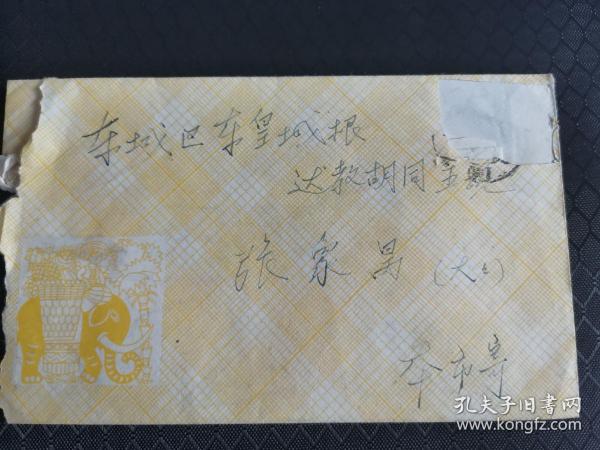 东城区东皇城根
达教胡同
张家昌（大
本市寄
孔夫子旧书网
www.kongfz.com